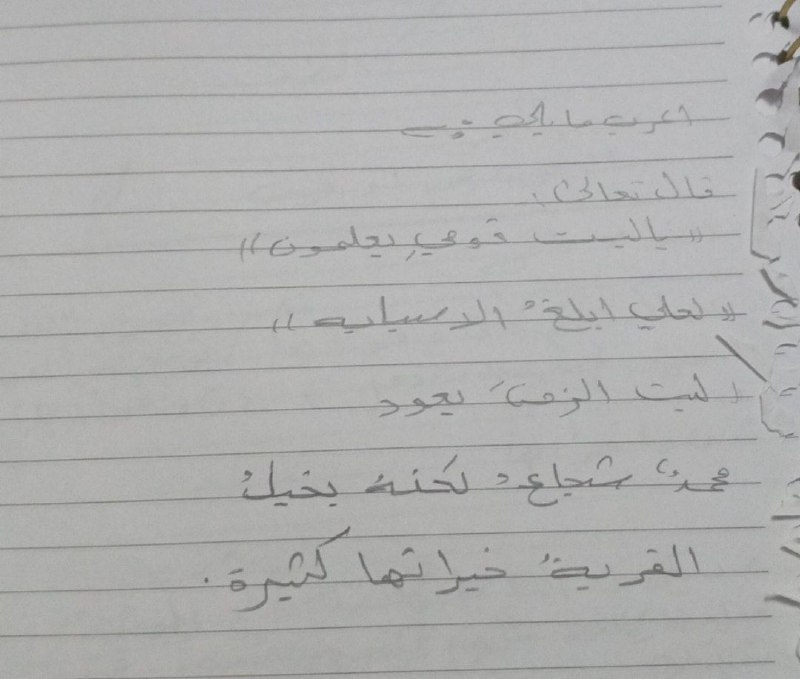 اعرب ما يلي :-
قال تعالى :
« ياليت قومي يعلمون »
« لعلي ابلغُ الاسباب »
ليت الزمنَ يعود
محمدٌ شجاعٌ لكنهُ بخيلٌ
القريةُ خيراتها كثيرة .